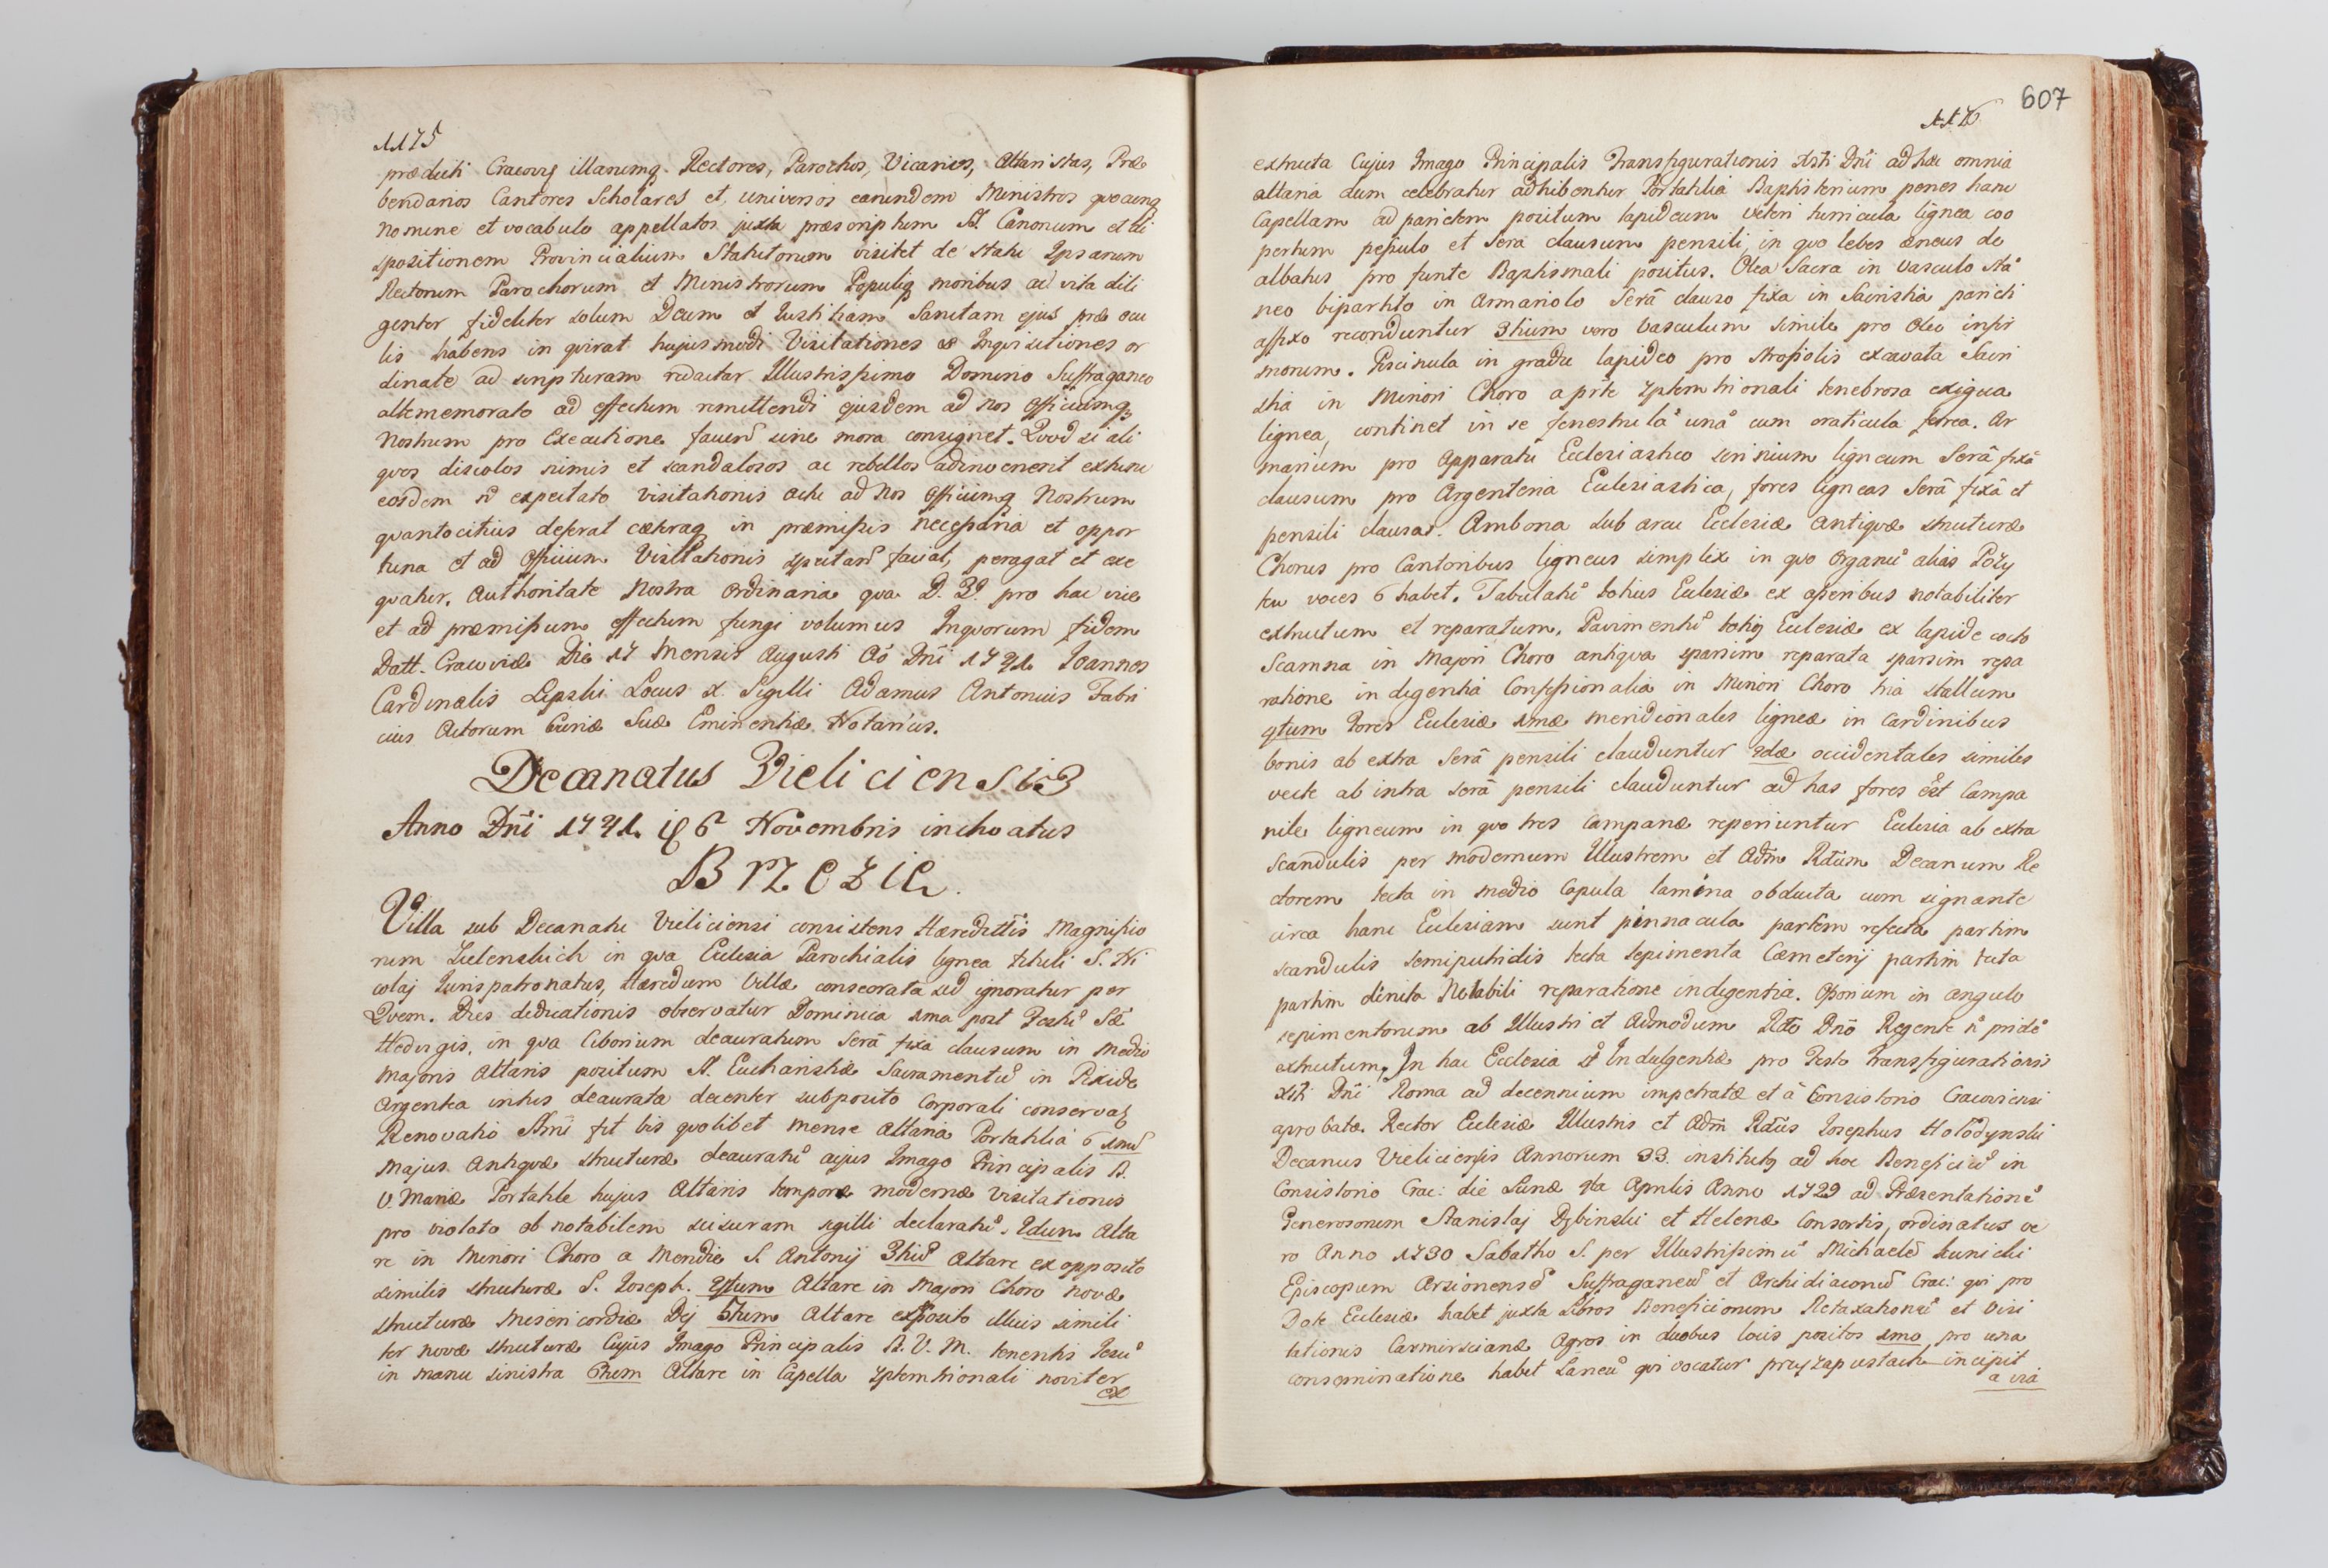 1175
prædicti Cracoviæ illarumq. Rectores, Parochos, Vicarios, Altaristas, Præ
bendarios Cantores Scholares et, universos earundem Ministros quocunq
nomine et vocabulo appellatos juxta præscriptum SS. Canonum et di
spositionem Provincialium Statutorum visitet de statu Ipsarum
Rectorum Parochorum et Ministrorum Populiq moribus ac vita dili
genter fideliter solum Deum et Iustitiam Sanctam ejus præ ocu
lis habens in qvirat hujusmodi Visitationes & Inqvisitiones or
dinate ad scripturam redactas Illustrissimo Domino Suffraganeo
altememorato ad effectum remittendi ejusdem ad nos Officiumq,
Nostrum pro Executione faciend sine mora consignet. Qvod si ali
qvos discolos nimis et scandalosos ac rebelles adinvenerit extunc
eosdem ñ expectato visitationis actu ad Nos Officiumq Nostrum
qvantocitius deferat cæteraq in præmissis necessaria et oppor
tuna et ad Officium Visitationis spectand faciat, peragat et exe
qvatur. Authoritate Nostra Ordinaria qva pro hac vice
et ad præmissum effectum fungi volumus Inqvorum fidem
Datt. Cracoviæ Die 17 Mensis Augusti Aõ Dñi 1741. Ioannes
Cardinalis Lipski Locus Sigilli Adamus Antonius Fabri
cius Actorum Curiæ Suæ Eminentiæ Notarius.
Decanatus Vieliciensis
Anno Dñi 1741. 6 Novembris inchoatus
Brzezie.
Villa sub Decanatu Vieliciensi consistens Hæreditãis Magnifico
rum Zielenskich in qva Ecclesia Parochialis lignea tituli S. Ni
colaj Jurispatronatus, Hæredum Villæ consecrata sed ignoratur per
Qvem. Dies dedicationis observatur Dominica 1ma post Festũ Sæ
Hedvigis, in qva Ciborium deauratum Serã fixa clausum in medio
Majoris Altaris positum SS. Eucharistiæ Sacramentũ in Pixide
Argentea intus deaurata decenter subposito Corporali conservaꝫ
Renovatio SSmi fit bis qvolibet mense Altaria Portatilia 6 1mũ
Majus Antiqvæ structuræ deauratũ cujus Imago Principalis B.
V. Mariæ Portatile hujus Altaris tempore modernæ Visitationis
pro violato ob notabilem scisuram sigilli declaratũ. 2dum Alta
re in Minori Choro a Meridie S. Antonij 3tiũ Altare ex opposito
similis structuræ S. Ioseph. 4tum Altare in Majori Choro novæ
structuræ Misericordiæ Dej 5tum Altare exposito illius simili
ter novæ structuræ Cujus Imago Principalis B. V. M. tenentis Iesũ
in manu sinistra 6tum Altare in Capella 7ptemtrionali noviter
ex
607
1176
extructa Cujus Imago Principalis Transfigurationis Xsti Dñi ad hæc omnia
altaria dum celebratur adhibentur Portatilia Baptisterium penes hanc
Capellam ad parietem positum lapideum veteri tunicula lignea coo
pertum pepulo et Sera clausum pensili, in qvo lebes æneus de
albatus pro funte Baptismali positus. Olea Sacra in vasculo stã
neo bipartito in Armariolo Serã clauso fixa in Sacristia parieti
affixo reconduntur 3tium vero Vasculum simile pro Oleo infir
morum. Piscinula in gradu lapideo pro stropiolis excavata Sacri
stia in Minori Choro a prte 7ptemtrionali tenebrosa exigua
lignea, continet in se fenestrulã unã cum craticula ferrea. Ar
marium pro Apparatu Ecclesiastico scrinium ligneum Serã fixã
clausum pro Argenteria Ecclesiastica, fores ligneas Serã fixã et
pensili clausas. Ambona sub arcu Ecclesiæ Antiqvæ structuræ
Chorus pro Cantoribus ligneus simplex in qvo Organũ alias Pozy
tew voces 6 habet. Tabulatũ totius Ecclesiæ ex asseribus notabiliter
extructum et reparatum. Pavimentũ totiꝰ Ecclesiæ ex lapide cocto
Scamna in Majori Choro antiqva sparsim reparata sparsim repa
ratione indigentia Confessionalia in Minori Choro tria stallum
4tum Fores Ecclesiæ 1mæ meridionales ligneæ in Cardinibus
bonis ab extra Serã pensili clauduntur 2dæ occidentales similes
vecte ab intra serã pensili clauduntur ad has fores ẽst Campa
nile ligneum in qvo tres Campanæ reperiuntur Ecclesia ab extra
Scandulis per modernum Illustrem et Adm Rdum Decanum Re
ctorem tecta in medio Copula lamina obducta cum signante
circa hanc Ecclesiam sunt pinnacula partim refecta partim
scandulis semiputridis tecta sepimenta Cæmeterij partim tecta
partim diruta Notabili reparatione indigentia. Osorium in angulo
sepimentorum ab Illustri et Admodum Rdo Dño Regente ñ pridẽ
extructum. In hac Ecclesia Indulgentiæ pro Festo Transfigurationis
Xsti Dñi Roma ad decennium impetratæ et â Consistorio Cracoviensi
aprobatæ. Rector Ecclesiæ Illustris et Adm Rdus Iosephus Hołodynski
Decanus Vieliciensis Annorum 33. institutꝰ ad hoc Beneficiũ in
Consistorio Crac: die Lunæ 4ta Aprilis Anno 1729 ad Præsentationẽ
Generosorum Stanislaj Dębinski et Helenæ Consortis, ordinatus ve
ro Anno 1730 Sabatho S. per Illustrissimũ Michaelẽ Kunicki
Episcopum Arsionensẽ Suffraganeũ et Archidiaconũ Crac: qvi pro
Dote Ecclesiæ habet juxta Libros Beneficiorum Retaxationũ et Visi
tationis Cazmirscianæ Agros in duobus locis positos 1mo pro una
consominatione habet Laneũ qvi vocatur przyzapustach incipit
a via